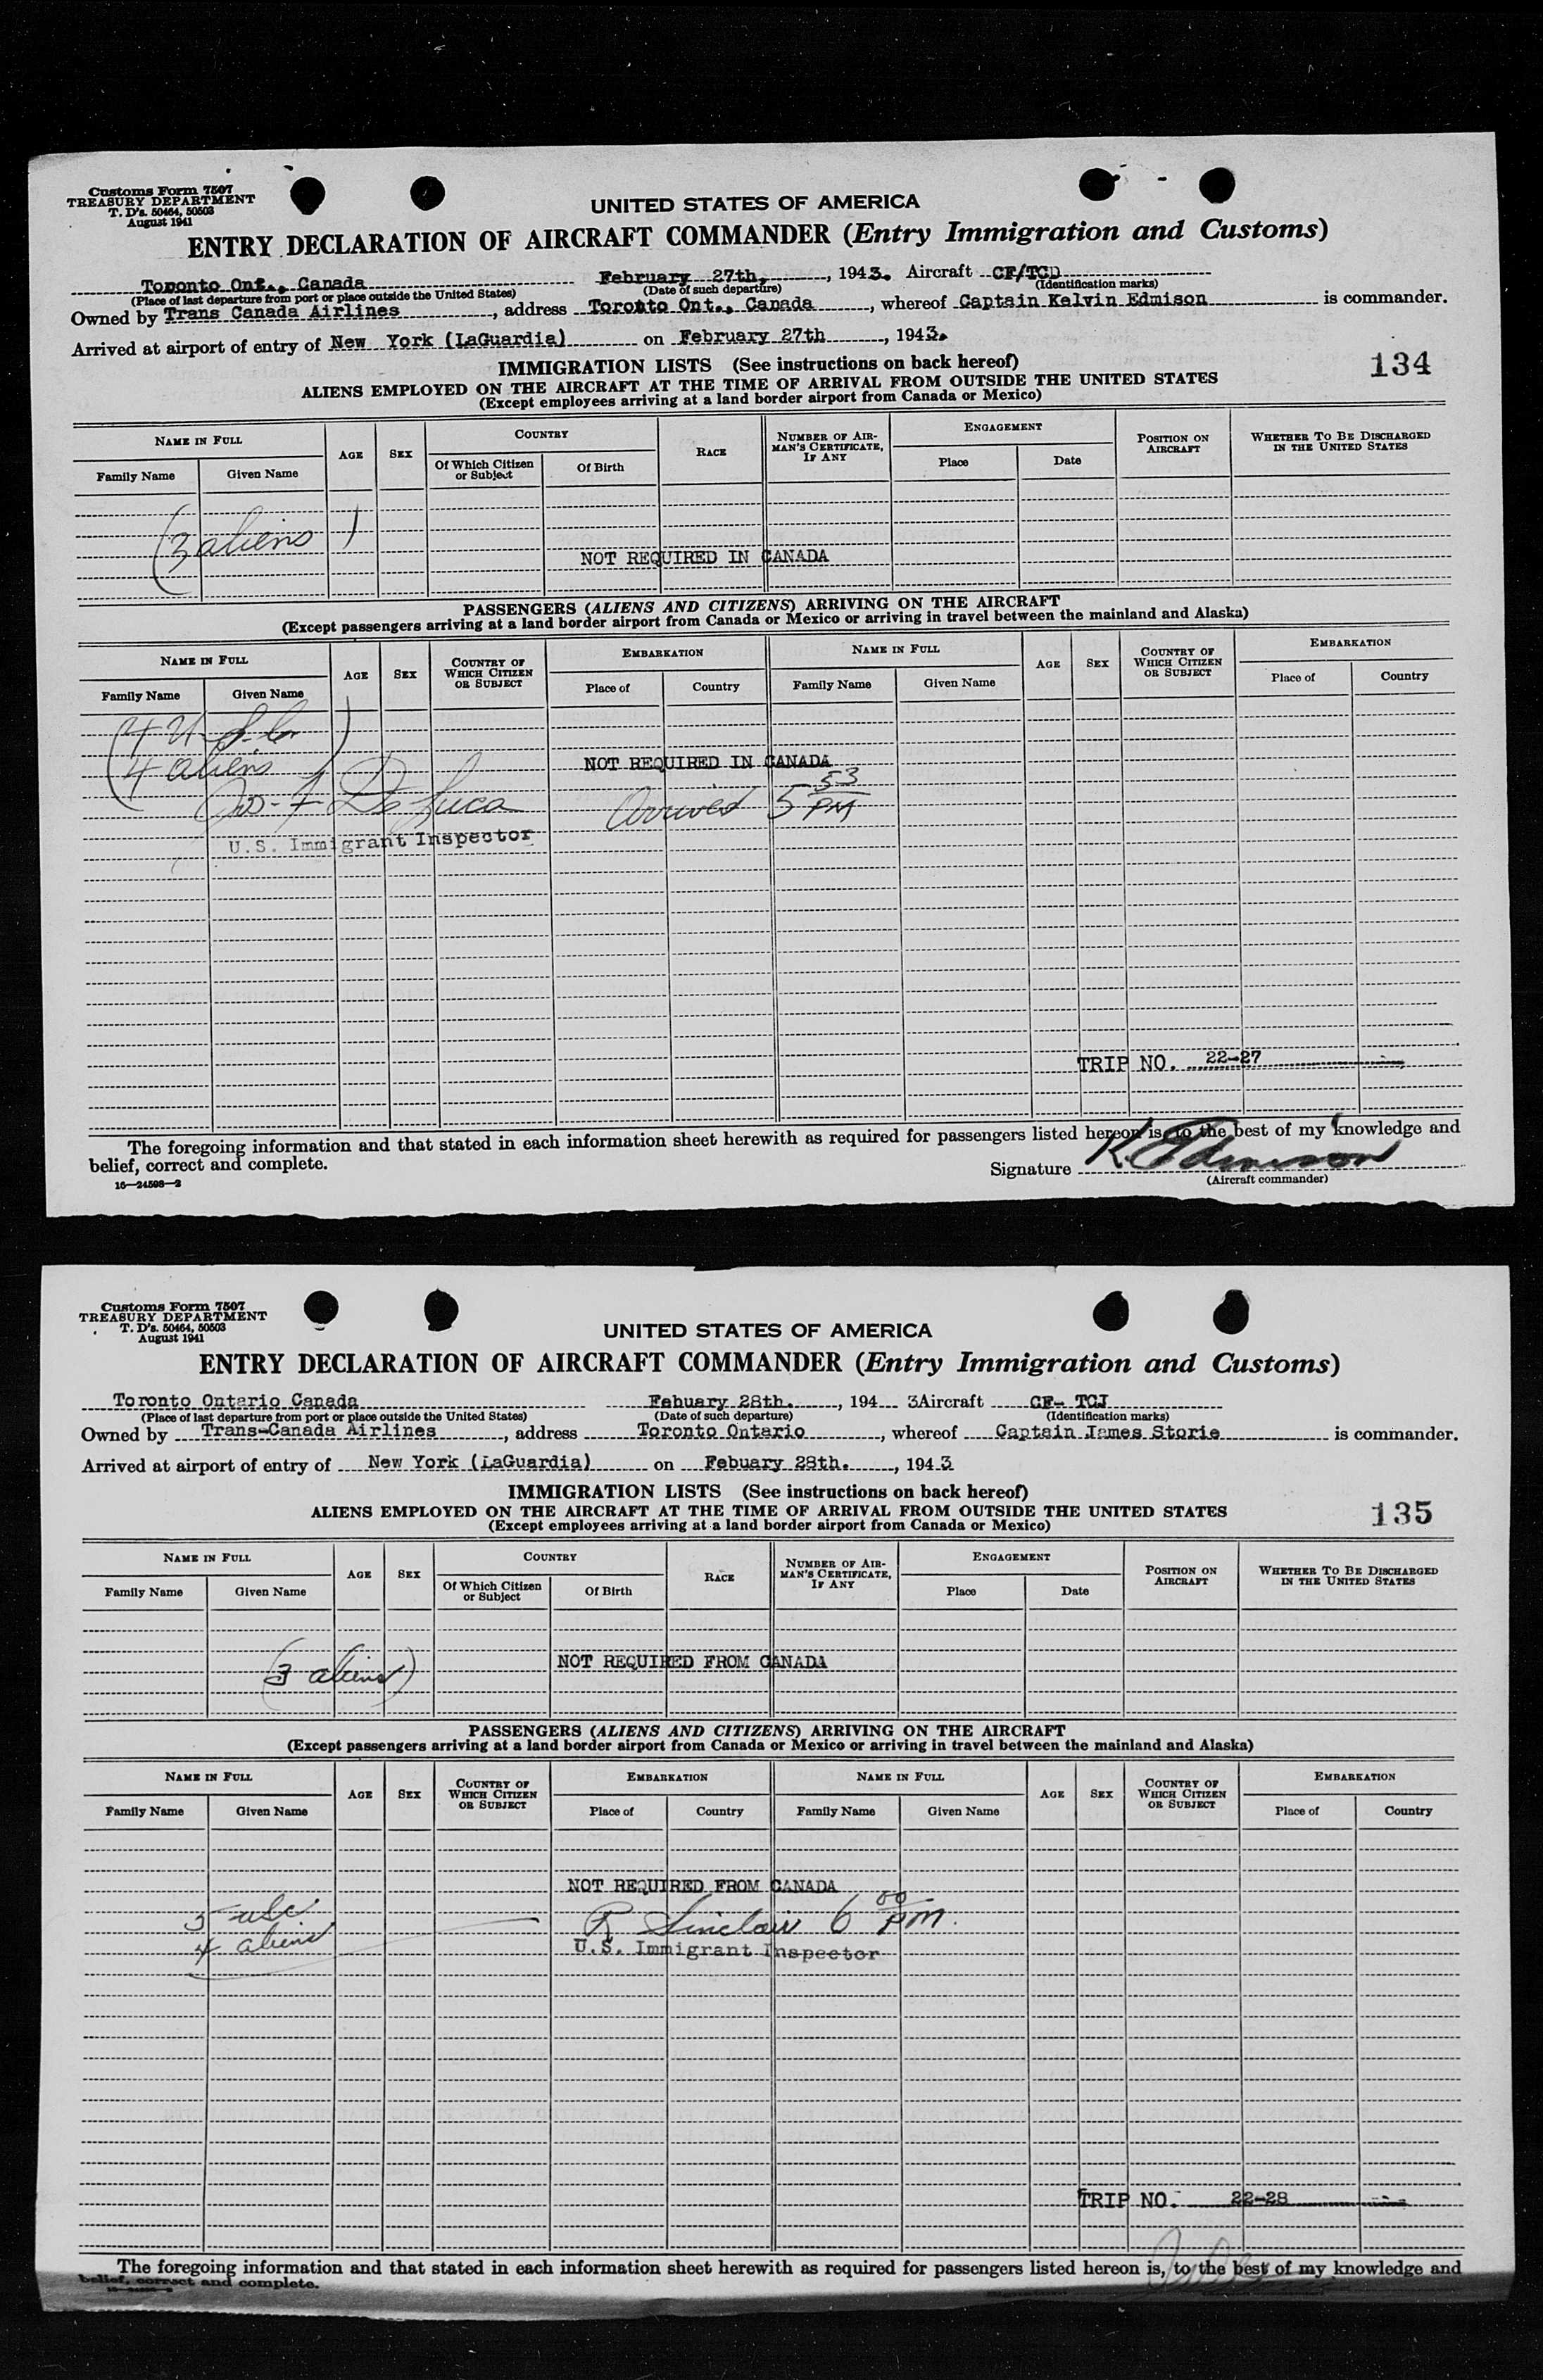 Customs Form 7507
TREASURY DEPARTMENT
T. D's. 50464, 50503
August 1941
UNITED STATES OF AMERICA
ENTRY DECLARATION OF AIRCRAFT COMMANDER (Entry Immigration and Customs)
Toronto Ont., Canada February 27th, , 1943. Aircraft CF/TCD
(Place of last departure from port or place outside the United States) (Date of such departure) (Identification marks)
Owned by Trans Canada Airlines , address Toronto Ont., Canada , whereof Captain Kelvin Edmison is commander.
Arrived at airport of entry of New York (LaGuardia) on February 27th , 1943.
IMMIGRATION LISTS (See instructions on back hereof)
134
ALIENS EMPLOYED ON THE AIRCRAFT AT THE TIME OF ARRIVAL FROM OUTSIDE THE UNITED STATES
(Except employees arriving at a land border airport from Canada or Mexico)
NAME IN FULL AGE SEX COUNTRY RACE NUMBER OF AIRMAN'S CERTIFICATE, IF ANY ENGAGEMENT POSITION ON AIRCRAFT WHETHER TO BE DISCHARGED IN THE UNITED STATES
Family Name Given Name Of Which Citizen or Subject Of Birth Place Date
(3 aliens)
NOT REQUIRED IN CANADA
PASSENGERS (ALIENS AND CITIZENS) ARRIVING ON THE AIRCRAFT
(Except passengers arriving at a land border airport from Canada or Mexico or arriving in travel between the mainland and Alaska)
NAME IN FULL AGE SEX COUNTRY OF WHICH CITIZEN OR SUBJECT EMBARKATION NAME IN FULL AGE SEX COUNTRY OF WHICH CITIZEN OR SUBJECT EMBARKATION
Family Name Given Name Place of Country Family Name Given Name Place of Country
4 aliens
NOT REQUIRED IN CANADA
De Luca Arrived 5 53 PM
U.S. Immigrant Inspector
TRIP NO. 22-27
The foregoing information and that stated in each information sheet herewith as required for passengers listed hereon is, to the best of my knowledge and
belief, correct and complete.
Signature K. Edmison
(Aircraft commander)
16—24598—2
Customs Form 7507
TREASURY DEPARTMENT
T. D's. 50464, 50503
August 1941
UNITED STATES OF AMERICA
ENTRY DECLARATION OF AIRCRAFT COMMANDER (Entry Immigration and Customs)
Toronto Ontario Canada Febuary 28th. , 194 3 Aircraft CF- TCJ
(Place of last departure from port or place outside the United States) (Date of such departure) (Identification marks)
Owned by Trans-Canada Airlines , address Toronto Ontario , whereof Captain James Storie is commander.
Arrived at airport of entry of New York (LaGuardia) on Febuary 28th. , 1943
IMMIGRATION LISTS (See instructions on back hereof)
135
ALIENS EMPLOYED ON THE AIRCRAFT AT THE TIME OF ARRIVAL FROM OUTSIDE THE UNITED STATES
(Except employees arriving at a land border airport from Canada or Mexico)
NAME IN FULL AGE SEX COUNTRY RACE NUMBER OF AIRMAN'S CERTIFICATE, IF ANY ENGAGEMENT POSITION ON AIRCRAFT WHETHER TO BE DISCHARGED IN THE UNITED STATES
Family Name Given Name Of Which Citizen or Subject Of Birth Place Date
NOT REQUIRED FROM CANADA
(3 aliens)
PASSENGERS (ALIENS AND CITIZENS) ARRIVING ON THE AIRCRAFT
(Except passengers arriving at a land border airport from Canada or Mexico or arriving in travel between the mainland and Alaska)
NAME IN FULL AGE SEX COUNTRY OF WHICH CITIZEN OR SUBJECT EMBARKATION NAME IN FULL AGE SEX COUNTRY OF WHICH CITIZEN OR SUBJECT EMBARKATION
Family Name Given Name Place of Country Family Name Given Name Place of Country
NOT REQUIRED FROM CANADA
usc R Sinclair 6 00 PM.
4 aliens
U.S. Immigrant Inspector
TRIP NO. 22-28
The foregoing information and that stated in each information sheet herewith as required for passengers listed hereon is, to the best of my knowledge and
belief, correct and complete.